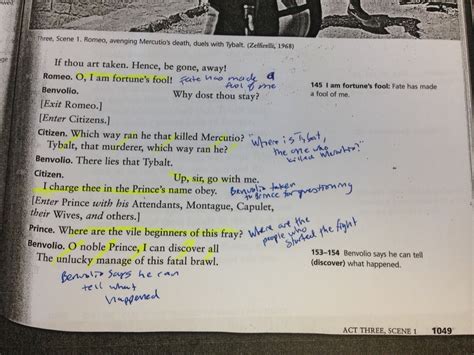 Three, Scene 1. Romeo, avenging Mercutio's death, duels with Tybalt. (Zeffirelli, 1968)
If thou art taken. Hence, be gone, away!
Romeo. O, I am fortune's fool! Fate has made a
fool of me
145 I am fortune's fool: Fate has made
a fool of me.
Benvolio. Why dost thou stay?
[Exit Romeo.]
[Enter Citizens.]
Citizen. Which way ran he that killed Mercutio?
Tybalt, that murderer, which way ran he?
"Where is Tybalt,
the one who
killed Mercutio?"
Benvolio. There lies that Tybalt.
Citizen. Up, sir, go with me.
I charge thee in the Prince's name obey.
Benvolio taken
to Prince for questioning
[Enter Prince with his Attendants, Montague, Capulet,
their Wives, and others.]
Prince. Where are the vile beginners of this fray?
Where are the
people who
started the fight
Benvolio. O noble Prince, I can discover all
The unlucky manage of this fatal brawl.
153–154 Benvolio says he can tell
(discover) what happened.
Benvolio says he can
tell what
happened
ACT THREE, SCENE 1 1049